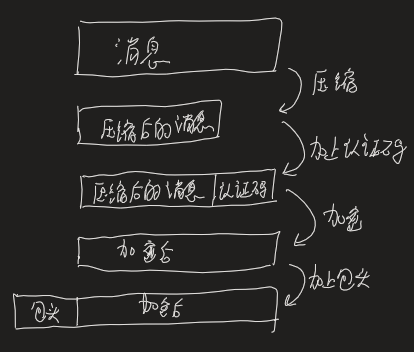 消息
压缩
压缩后的消息
加上认证码
压缩后的消息 认证码
加密
加密后
加上包头
包头 加密后